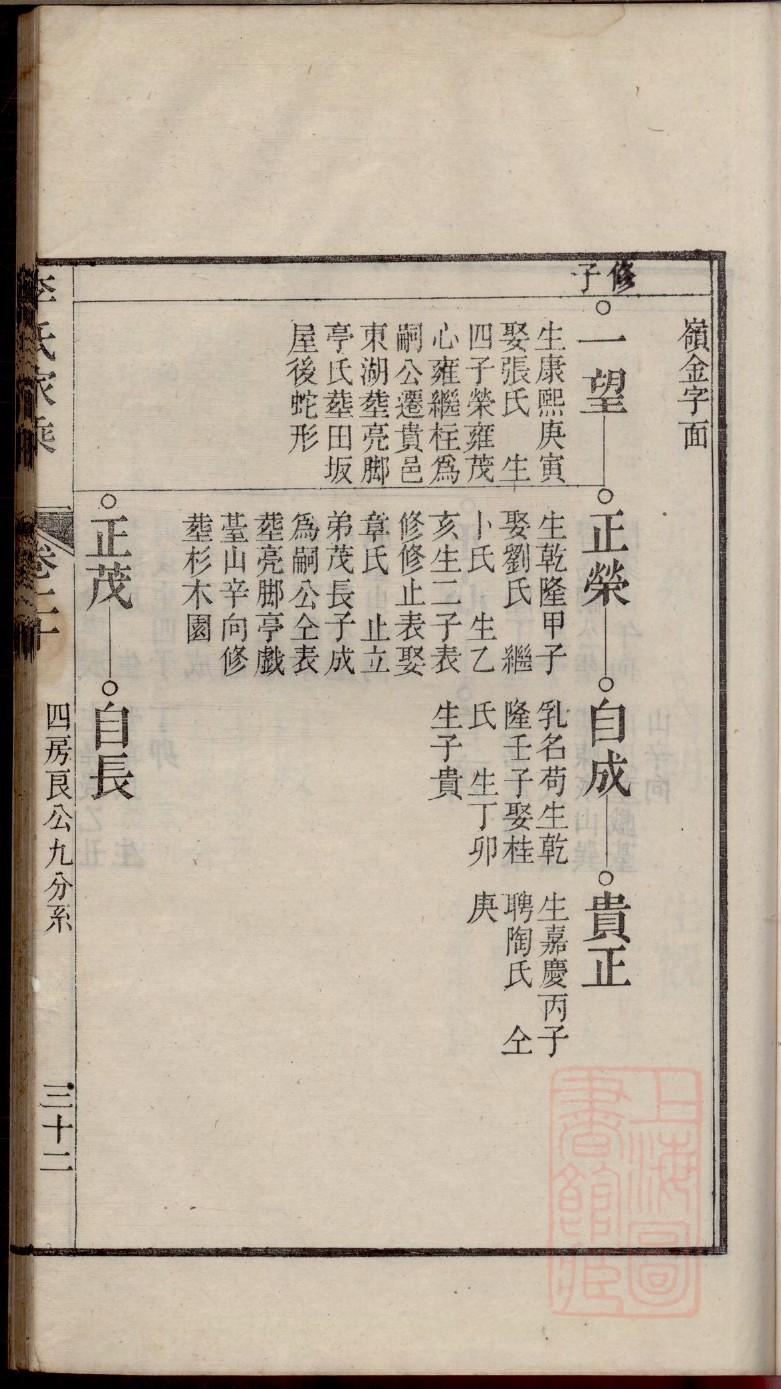 嶺金字面
修子
一望
生康熙庚寅
娶張氏　生
四子榮雍茂
心雍繼柱爲
嗣公遷貴邑
東湖塟亮脚
亭氏塟田坂
屋後蛇形
正榮
生乾隆甲子
娶劉氏　繼
卜氏　生乙
亥生二子表
修修止表娶
章氏　止立
弟茂長子成
爲嗣公仝表
塟亮脚亭戲
䑓山辛向修
塟杉木園
自成
乳名苟生乾
隆壬子娶桂
氏　生丁卯
生子貴
貴正
生嘉慶丙子
聘陶氏　仝
庚
正茂
自長
李氏家乘
卷二十
四房良公九分系
三十二
上海圖書館藏